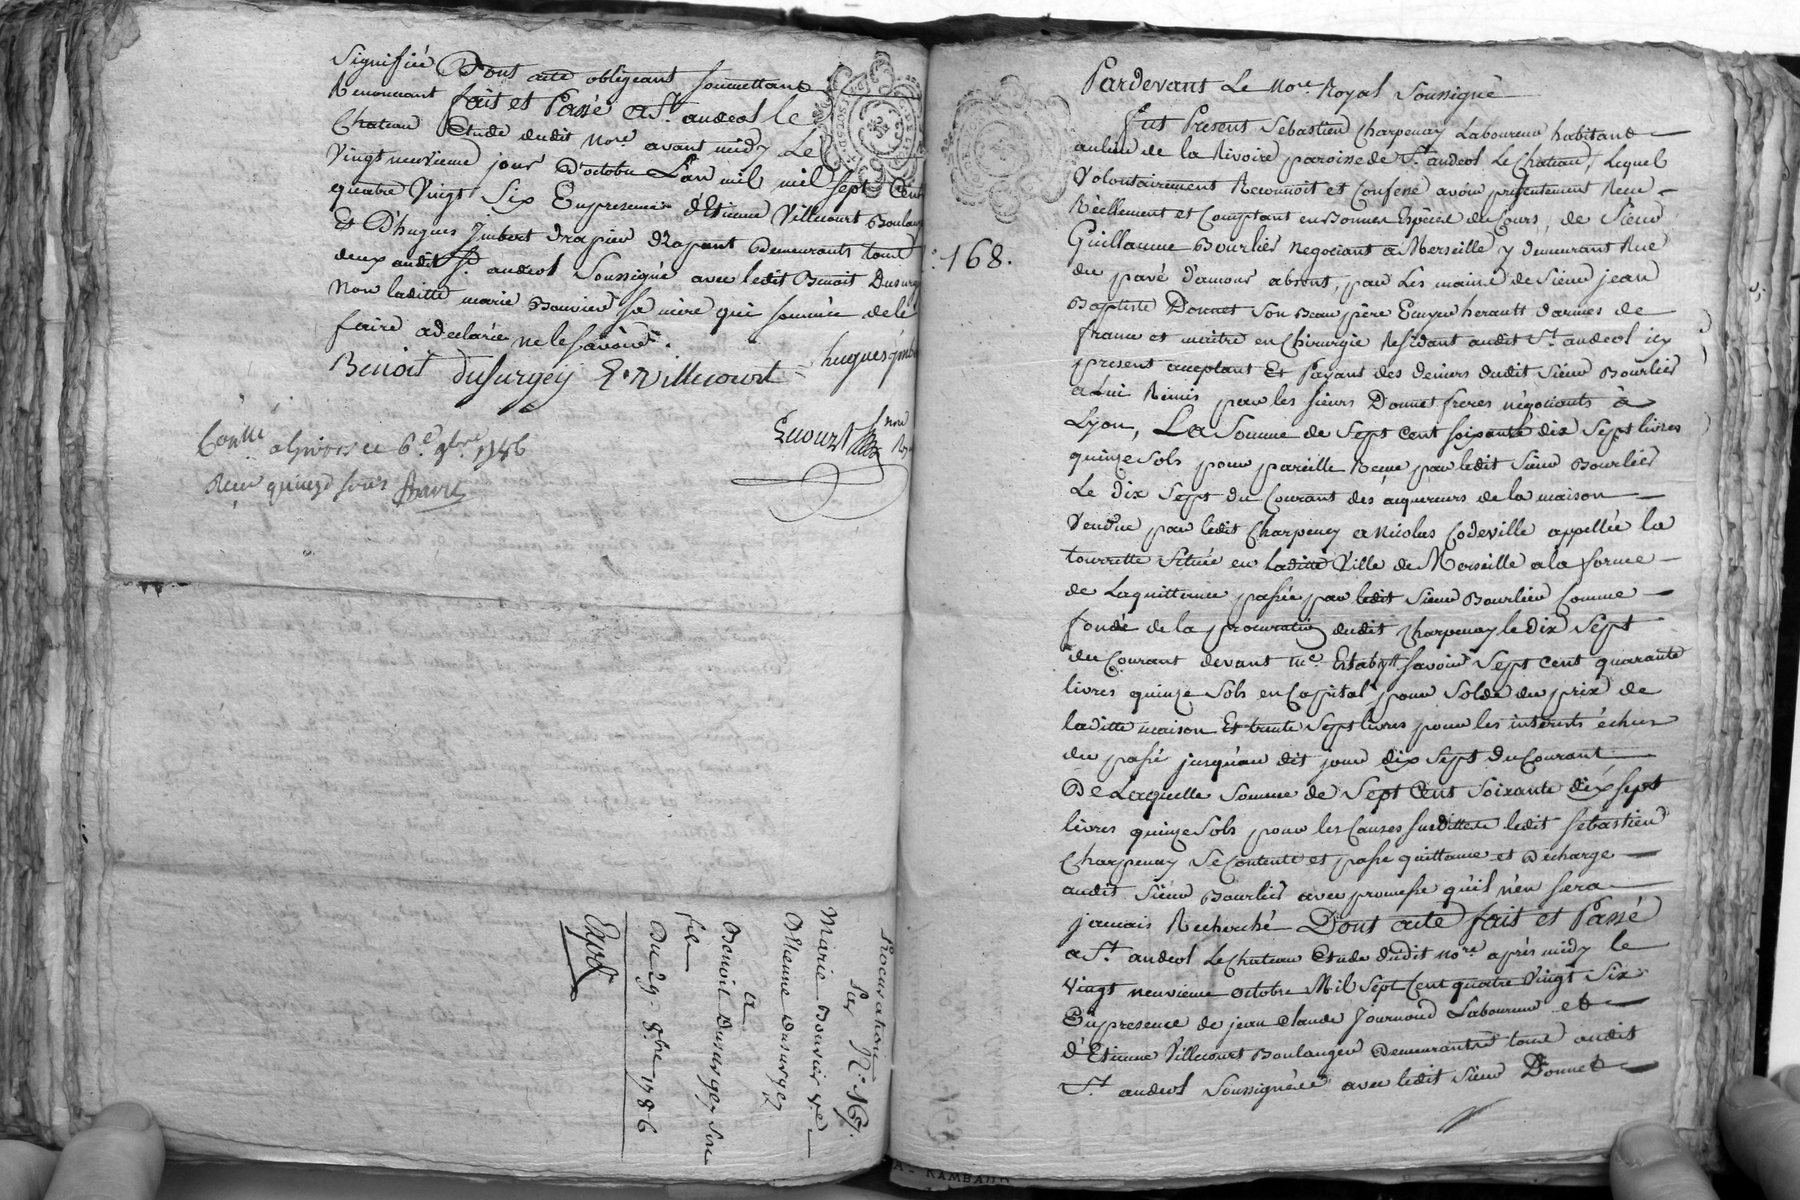 Signifiée Dont acte obligeant soumettant
Renonçant fait et Passé a St. andeol le
Chateau Etude dudit Nore. avant midy Le
vingt neuvieme jour D'octobre L'an mil mil sept Cent
quatre Vingt Six En presence d'Etienne Villecourt Boulang
Et D'hugues Jmbert drapier drapant Demeurants tout
deux audit St. andeol Soussignés avec ledit Benoit Dusurgey
Non laditte marie Bouvier sa mere qui sommée de le
faire a declarée ne le savoir.
Benoit dusurgey E. villecourt hugues jmbe
Conllé a Givors ce 6e. 9bre 1786
Reçu quinze sous
Procuration
Par N°. 167.
Marie Bouvier Ve.
D'Etienne Dusurgey
a
Benoit Dusurgey son
fils
Du 29. 8bre 1786
Expd.
168.
Pardevant Le Nore. Royal Soussigné
fut Present Sebastien Charpenay Laboureur habitant
au lieu de la Rivoire paroisse de St. andeol Le Chateau, Lequel
Volontairement Reconnoit et Confesse avoir presentement Reçu
Réellement et Comptant en Bonnes Espèces du Cours, de Sieur
Guillaume Bourlier negociant a Merseille y demeurant Rue
du pavé d'amour absent, par Les mains de Sieur jean
Baptiste Donnet Son Beau père Ecuyer herault d'armes de
france et maitre en Chirurgie Résidant audit St. andeol icy
present acceptant Et Payant des deniers dudit Sieur Bourlier
a Lui Remis par les sieurs Donnet freres négociants à
Lyon, La Somme de Sept cent soixante dix Sept livres
quinze Sols pour pareille Reçue par ledit Sieur Bourlier
Le dix Sept du Courant des acquereurs de la maison
Vendue par ledit Charpenay a Nicolas Codeville appellée la
tourrette Située en laditte Ville de Merseille a la forme
de Laquittance passée par ledit Sieur Bourlier Comme
fondé de la procuration dudit Charpenay le dix Sept
du Courant devant me. savoir Sept cent quarante
livres quinze Sols en Capital pour Solde du prix de
laditte maison Et trente Sept livres pour les interêts échus
du passé jusqu'au dit jour dix Sept du Courant
De Laquelle Somme de Sept Cent Soixante dix sept
livres quinze Sols pour les Causes susdittes ledit Sebastien
Charpenay Se Contente et passe quittance et Decharge
audit Sieur Bourlier avec promesse qu'il n'en sera
jamais Recherché Dont acte fait et Passé
a St. andeol Le Chateau Etude dudit nore. après midy le
Vingt neuvieme octobre Mil Sept Cent quatre Vingt Six
En presence de jean Claude Journoud Laboureur et
d'Etienne Villecourt Boulanger Demeurants tout audit
St. andeol Soussignés avec ledit Sieur Donnet